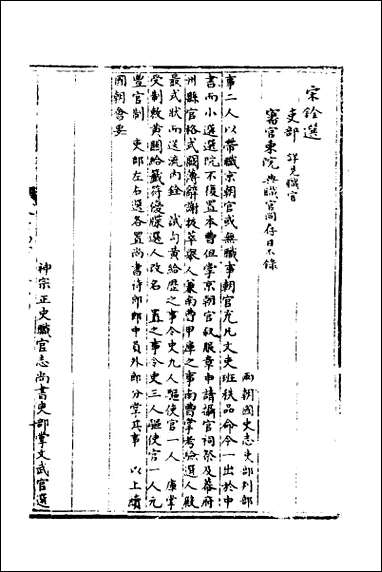 宋銓選
吏部 詳見職官
審官東院 與職官同存目不錄
兩朝國史志吏部判部
事二人以帶職京朝官或無職事朝官充凡文吏班秩品命令一出於中
書而小選選院不復置本曹但掌京朝官敘服章申請攝官祠祭及幕府
州縣官格式闕簿辭謝拔萃舉人兼南曹甲庫之事南曹掌考驗選人殿
最式狀而送流內銓 試勻黃給歷之事令史九人驅使官一人 庫掌
受制敕黃關給籤符優牒選人改名 置之事令史三人驅使官一人元
豐官制 吏部左右選各置尚書侍郎郎中員外郎分掌其事 以上續
國朝會要
神宗正史職官志尚書吏部掌文武官選